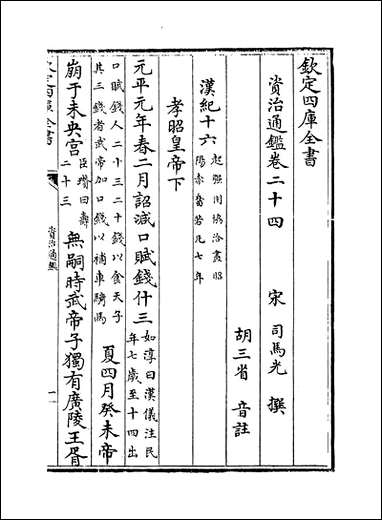 欽定四庫全書
資治通鑑卷二十四 宋 司馬光 撰
胡三省 音註
漢紀十六 起强圉協洽盡昭
陽赤奮若凡七年
孝昭皇帝下
元平元年春二月詔減口賦錢什三 如淳曰漢儀注民
年七歲至十四出
口賦錢人二十三二十錢以食天子
其三錢者武帝加口錢以補車騎馬 夏四月癸未帝
崩于未央宮 臣瓚曰壽
二十三 無嗣時武帝子獨有廣陵王胥
欽定四庫全書
資治通鑑
一